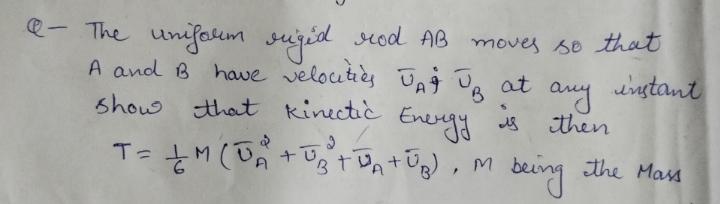 Q- The uniform rigid rod AB moves so that
A and B have velocities ūA & ūB at any instant
show that Kinectic Energy is then
T = 1/6 M (ūA² + ūB² + ūA + ūB), M being the Mass